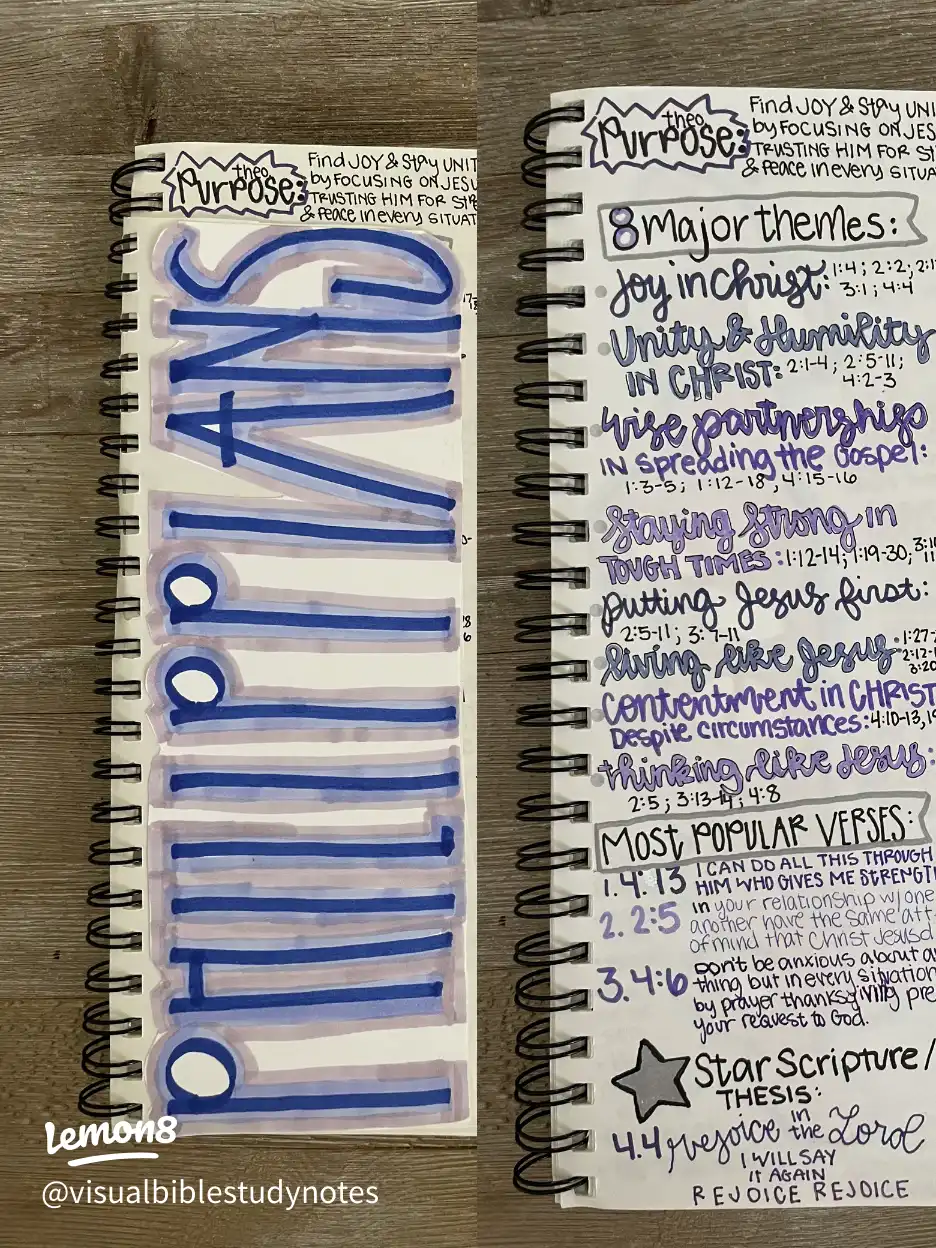 theo
Purpose:
Find JOY & Stay UNIT
by FOCUSING ON JESU
TRUSTING HIM FOR STRE
& Peace in every SITUAT
PHILIPPIANS
Lemon8
@visualbiblestudynotes
theo
Purpose:
Find JOY & Stay UNI
by FOCUSING ON JES
TRUSTING HIM FOR ST
& Peace in every SITUA
8 Major themes:
Joy in Christ: 1:4; 2:2;
3:1; 4:4
Unity & Humility
IN CHRIST: 2:1-4; 2:5-11;
4:2-3
Wise partnerships
IN Spreading the Gospel:
1:3-5; 1:12-18, 4:15-16
Staying Strong in
TOUGH TIMES: 1:12-14; 1:19-30;
putting Jesus first:
2:5-11; 3:7-11
living like Jesus
Contentment in CHRIST
Despite circumstances: 4:10-13,
thinking like Jesus:
2:5; 3:13-14; 4:8
MOST POPULAR VERSES:
1. 4:13 I CAN DO ALL THIS THROUGH
HIM WHO GIVES ME STRENGT
2. 2:5 in your relationship w/ one
another have the same att
of mind that Christ Jesus
3. 4:6 Don't be anxious about a
thing but in every situation
by prayer thanksgiving pre
your request to God.
Star Scripture/
THESIS:
4.4 rejoice in the Lord
I WILL SAY
IT AGAIN
REJOICE REJOICE